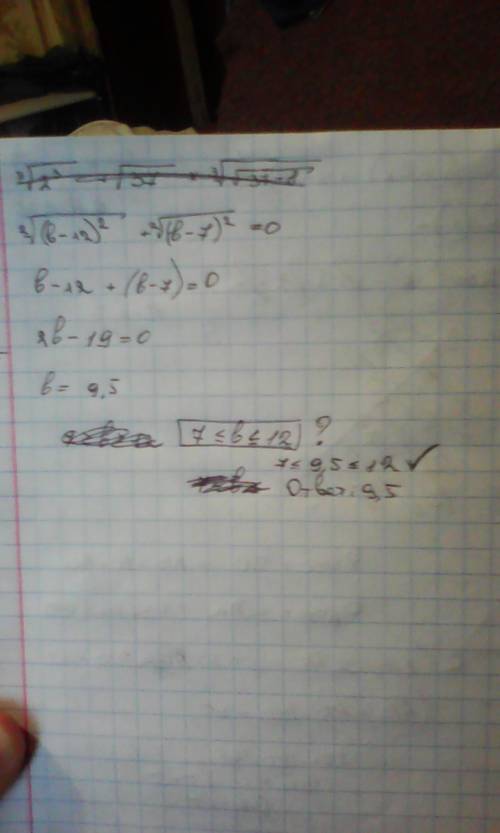 ²√(b-12)² + ²√(b-7)² = 0
b-12 + (b-7) = 0
2b - 19 = 0
b = 9,5
7 ≤ b ≤ 12 ?
7 ≤ 9,5 ≤ 12 ✓
Ответ: 9,5